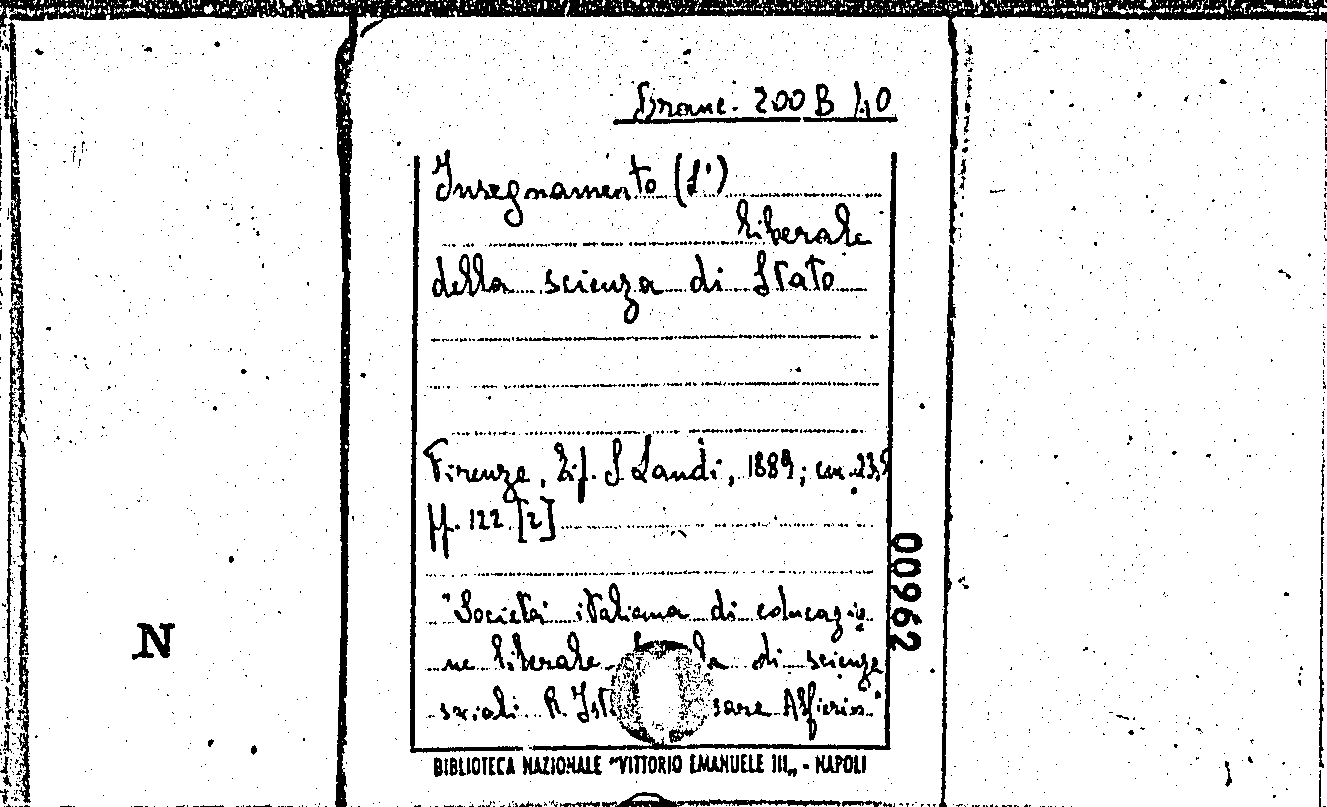 Branc. 200 B 40
Insegnamento (L')
liberale
della scienza di Stato
Firenze, Tip. S Landi, 1889; cm. 23,5
pp. 122 [2]
"Società italiana di educazio
ne liberale di scienze
sociali R. Alfieri"
00962
N
BIBLIOTECA NAZIONALE "VITTORIO EMANUELE III„ - NAPOLI